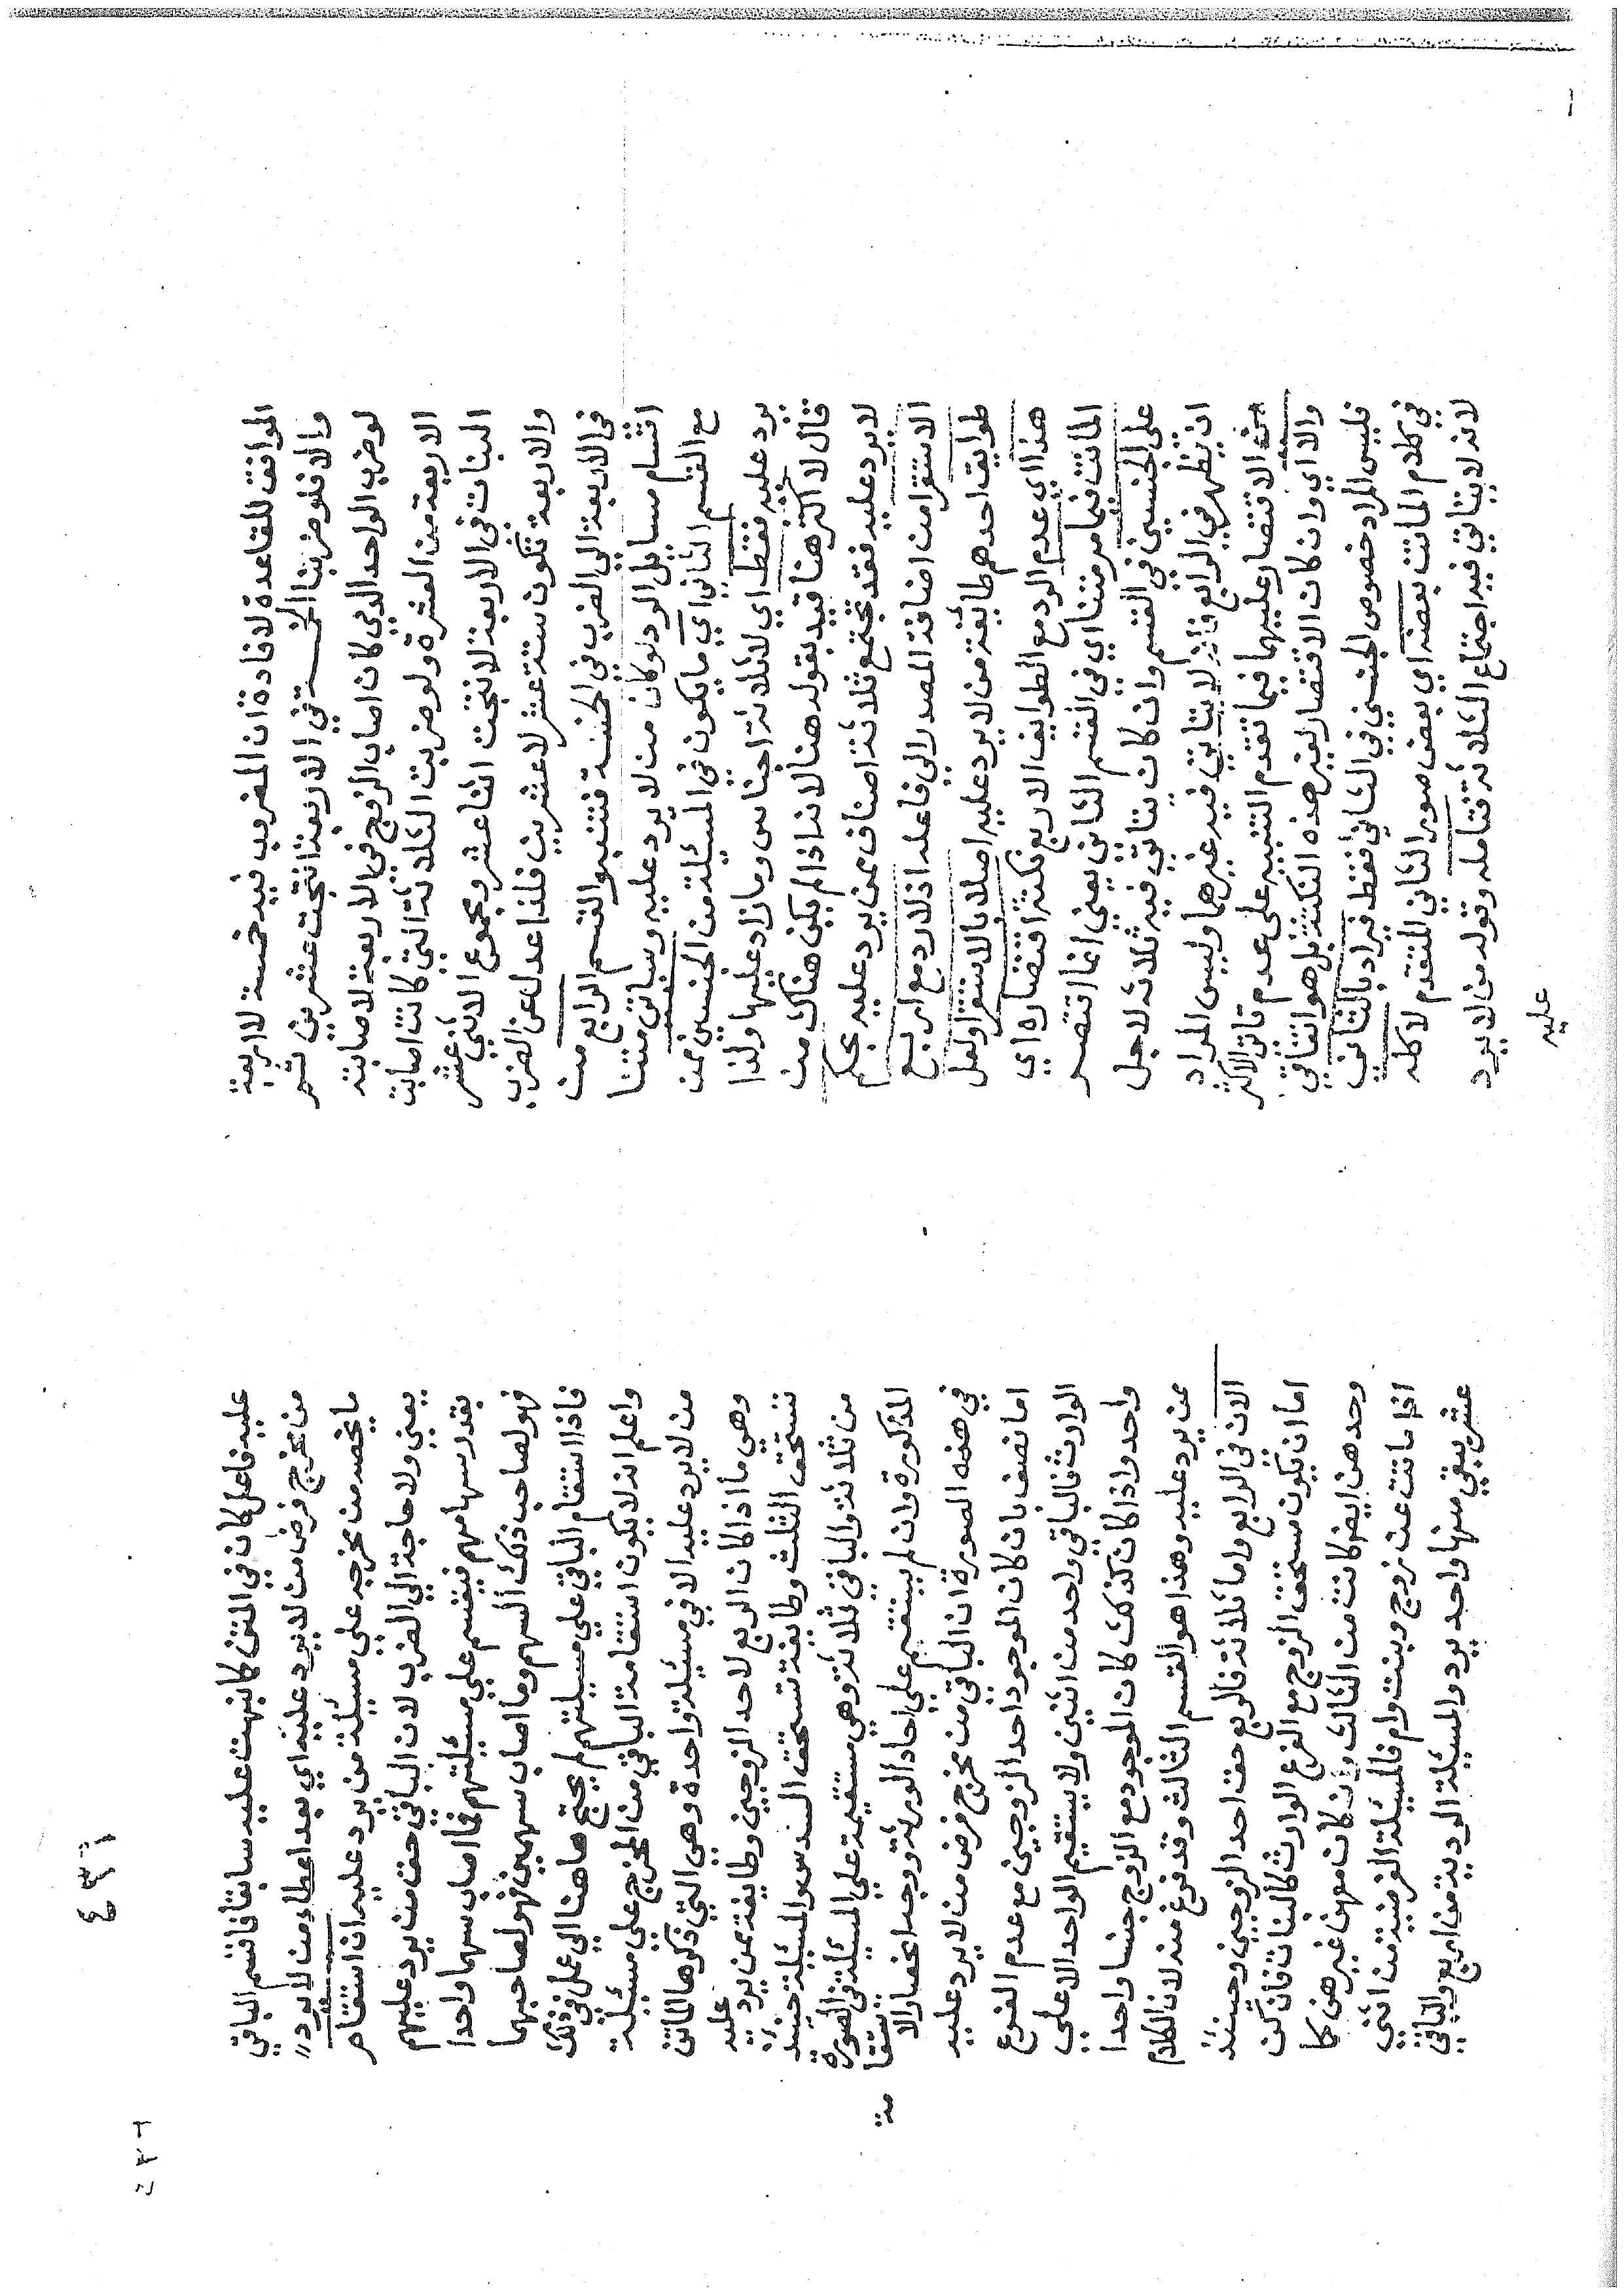 الموافق للقاعدة لافادة ان المضروب فيه خمسة لا اربعة
والا فلو ضربنا الخمسة في الاربعة انتجت عشرين ثم
لو ضرب الواحد الذي كان اصاب الزوج في الاربعة لاصابته
الاربعة من العشرة ولو ضربت الثلاثة التي كانت اصابت
البنات في الاربعة لانتجت اثنا عشر ومجموع الاثني عشر
والاربعة تكون ستة عشر لا عشرين فلذا عدل عن الضرب
في الاربعة الي الضرب في الخمسة فتنبه والقسم الرابع من
اقسام مسايل الرد لو كان من لا يرد عليه وسياتي متنا
مع القسم الثاني اي ما يكون في المسئلة من الجنسين ممن
يرد عليه فقط اي لا ثلاثة اجناس وما زاد عليها ولذا
قال لا اكثر هنا قيد بقوله هنا لانه اذا لم يكن هناك من
لا يرد عليه فقد تجتمع ثلاثة اصناف ممن يرد عليه بحكم
الاستقرا من اضافة المصدر الي فاعله اذ لا رد مع اربع
طوايف احدهم طايفة من لا يرد عليه اصلا بالاستقرا ولعل
هذا اي عدم الرد مع الطوايف الاربع نكتة اقتصاره اي
الماتن فيما مر متنا اي في القسم الثاني يعني انما اقتصر
علي الجنسين في القسم وان كان يتاتي فيه ثلاثة لاجل
ان تظهر في الرابع فانه لا يتاتي فيه غيرهما وليس المراد
الاقتصار عليهما فيما تقدم التنبيه علي عدم تاتي الاكثر
والا اي وان كان الاقتصار لغير هذه النكتة بل هو اتفاقي
فليس المراد خصوص الجنسين في الثاني فقط فيراد بالثاني
في كلام الماتن بعضه اي بعض صور الثاني المتقدم لا كله
لانه لا يتاتي فيه اجتماع الثلاثة فتامله وقوله من لا يرد
عليه
٤٣٦
عليه فاعل كان في المتن كما نبهت عليه سابقا فاقسم الباقي
من مخرج فرض من لا يرد عليه اي بعد اعطاء من لا يرد
ما يخصه من مخرجه علي مسئلة من يرد عليه ان استقام
يعني ولا حاجة الي الضرب لان الباقي حق من يرد عليهم
بقدر سهامهم فيقسم علي مسئلتهم فما اصاب سهما واحدا
فهو لصاحب ذلك السهم وما اصاب سهمين فهو لصاحبهما
فاذا استقام الباقي علي مسئلتهم لم يحتج هاهنا الي عمل في ذلك
واعلم انه لا يكون استقامة الباقي من المخرج علي مسئلة
من لا يرد عليه الا في مسئلة واحدة وهي التي ذكرها الماتن
وهي ما اذا كان الربع لاحد الزوجين وطايفة ممن يرد عليه
تستحق الثلث وطايفة تستحق السدس والمسئلة حينئذ
من ثلاثة والباقي ثلاثة وهي مستقيمة علي المسئلة في الصورة
المذكورة وان لم يستقم علي احاد الورثة ووجه انحصار الاستقامة
في هذه الصورة ان الباقي من مخرج فرض من لا يرد عليه
اما نصف بان كان الموجود احد الزوجين مع عدم الفرع
الوارث فالباقي واحد من اثنين ولا يستقيم الواحد الا علي
واحد واذا كان كذلك كان الموجود مع الزوج جنسا واحدا
ممن يرد عليه وهذا هو القسم الثالث وقد فرغ منه لان الكلام
الان في الرابع واما ثلاثة فالربع حق احد الزوجين وحينئذ
اما ان يكون مستحق الزوج مع الفرع الوارث كالبنات فان كن
وحدهن ايضا كانت من الثالث وان كان معهن غيرهن كما
اذا ماتت عن زوج وبنت وام فالمسئلة الفرضية من اثني
عشر يبقي منها واحد يرد والمسئلة الردية من اربع والباقي